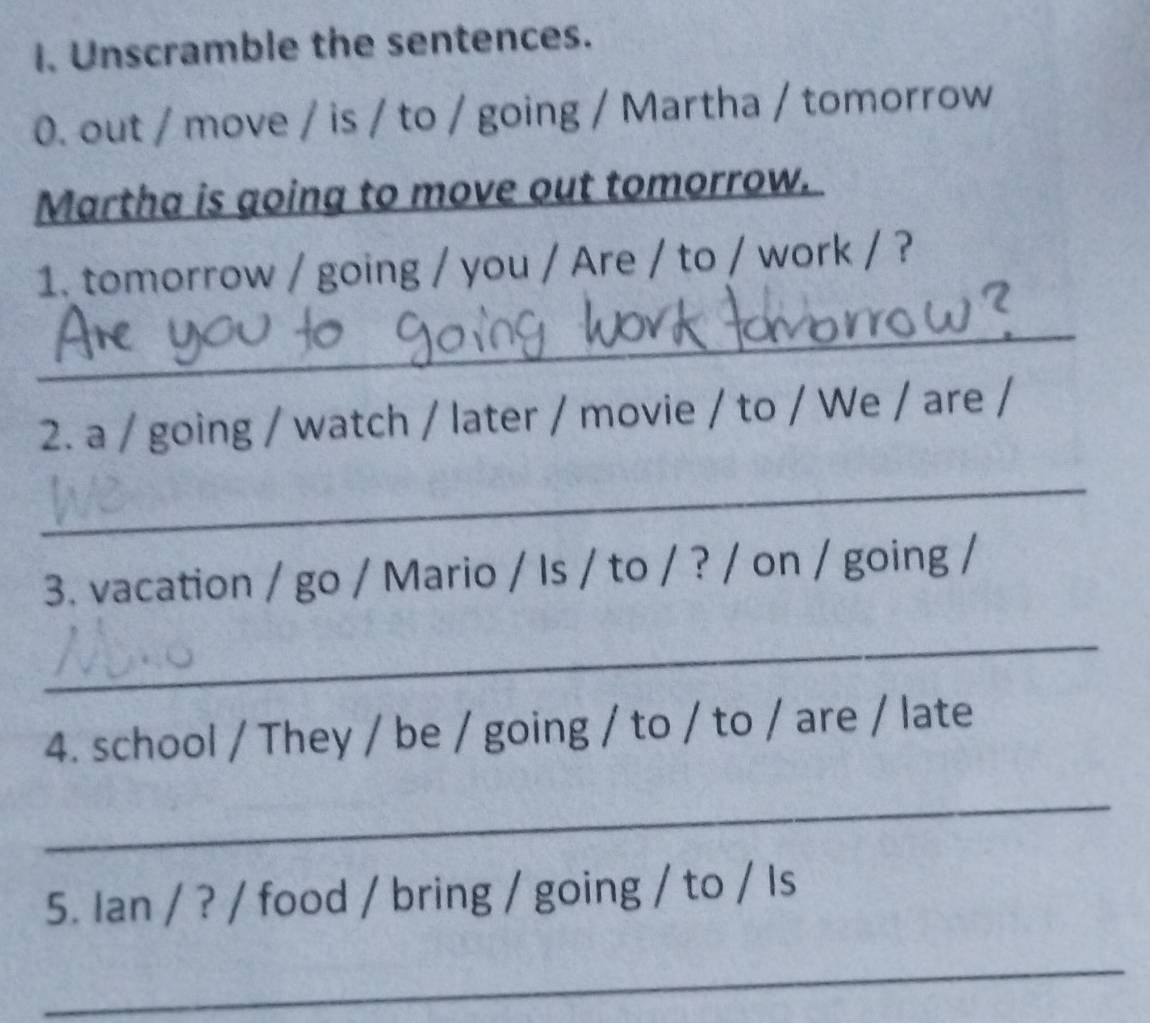 I. Unscramble the sentences.
0. out / move / is / to / going / Martha / tomorrow
Martha is going to move out tomorrow.
1. tomorrow / going / you / Are / to / work / ?
Are you to going work tomorrow?
2. a / going / watch / later / movie / to / We / are /
We
3. vacation / go / Mario / Is / to / ? / on / going /
4. school / They / be / going / to / to / are / late
5. Ian / ? / food / bring / going / to / Is